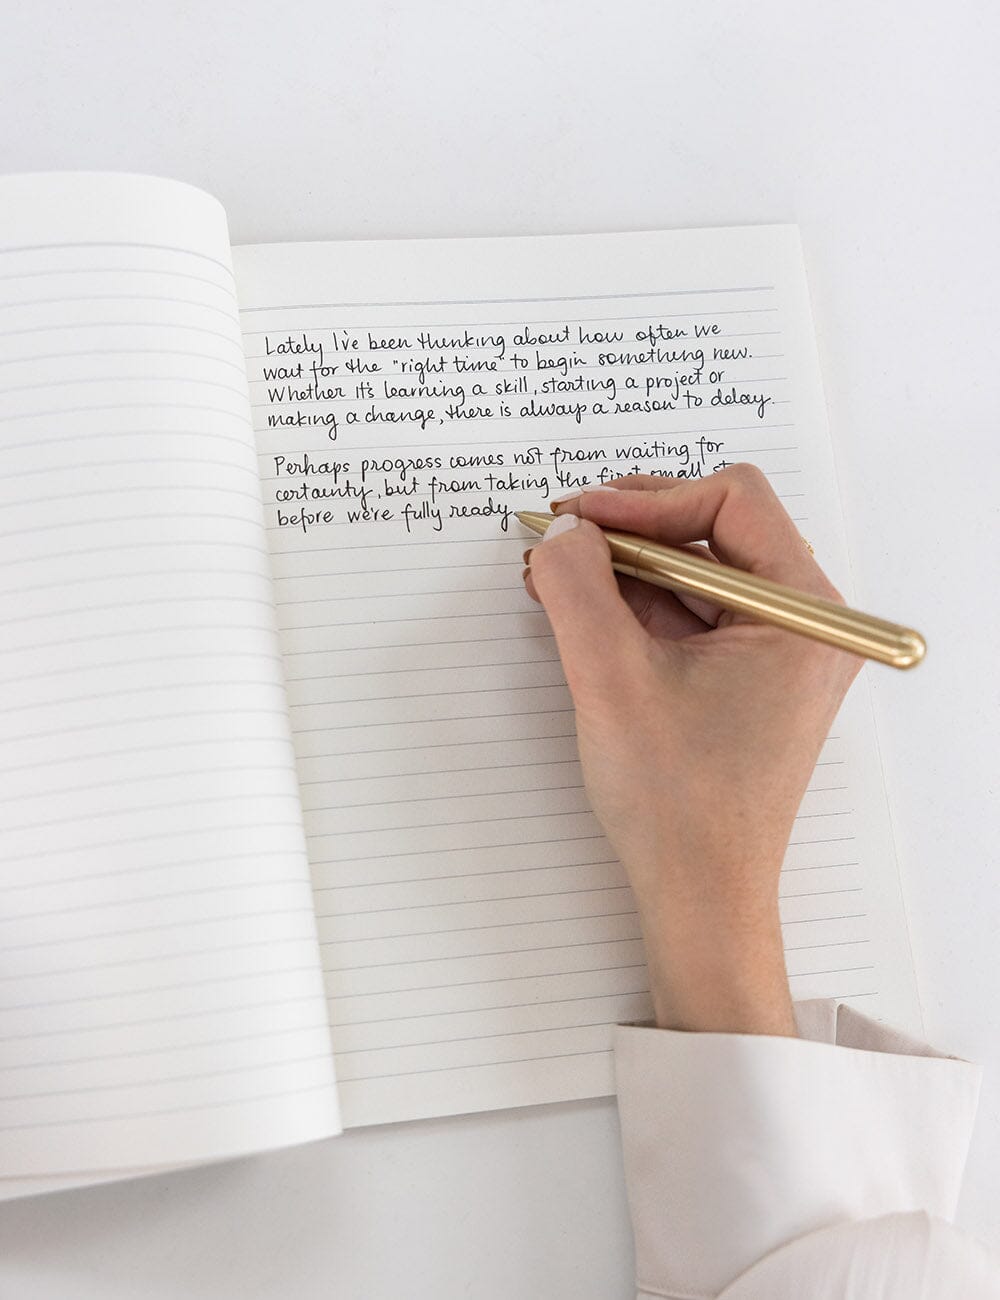 Lately I've been thinking about how often we
wait for the "right time" to begin something new.
Whether it's learning a skill, starting a project or
making a change, there is always a reason to delay.
Perhaps progress comes not from waiting for
certainty, but from taking the first small
before we're fully ready